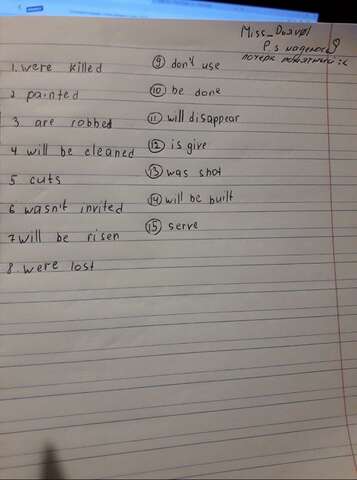 Miss_Dьяvol
P.s надеюсь
почерк понятный :с
1. were killed
2 painted
3 are robbed
4 will be cleaned
5 cuts
6 wasn't invited
7 will be risen
8. were lost
9 don't use
10 be done
11 will disappear
12 is give
13 was shot
14 will be built
15 serve